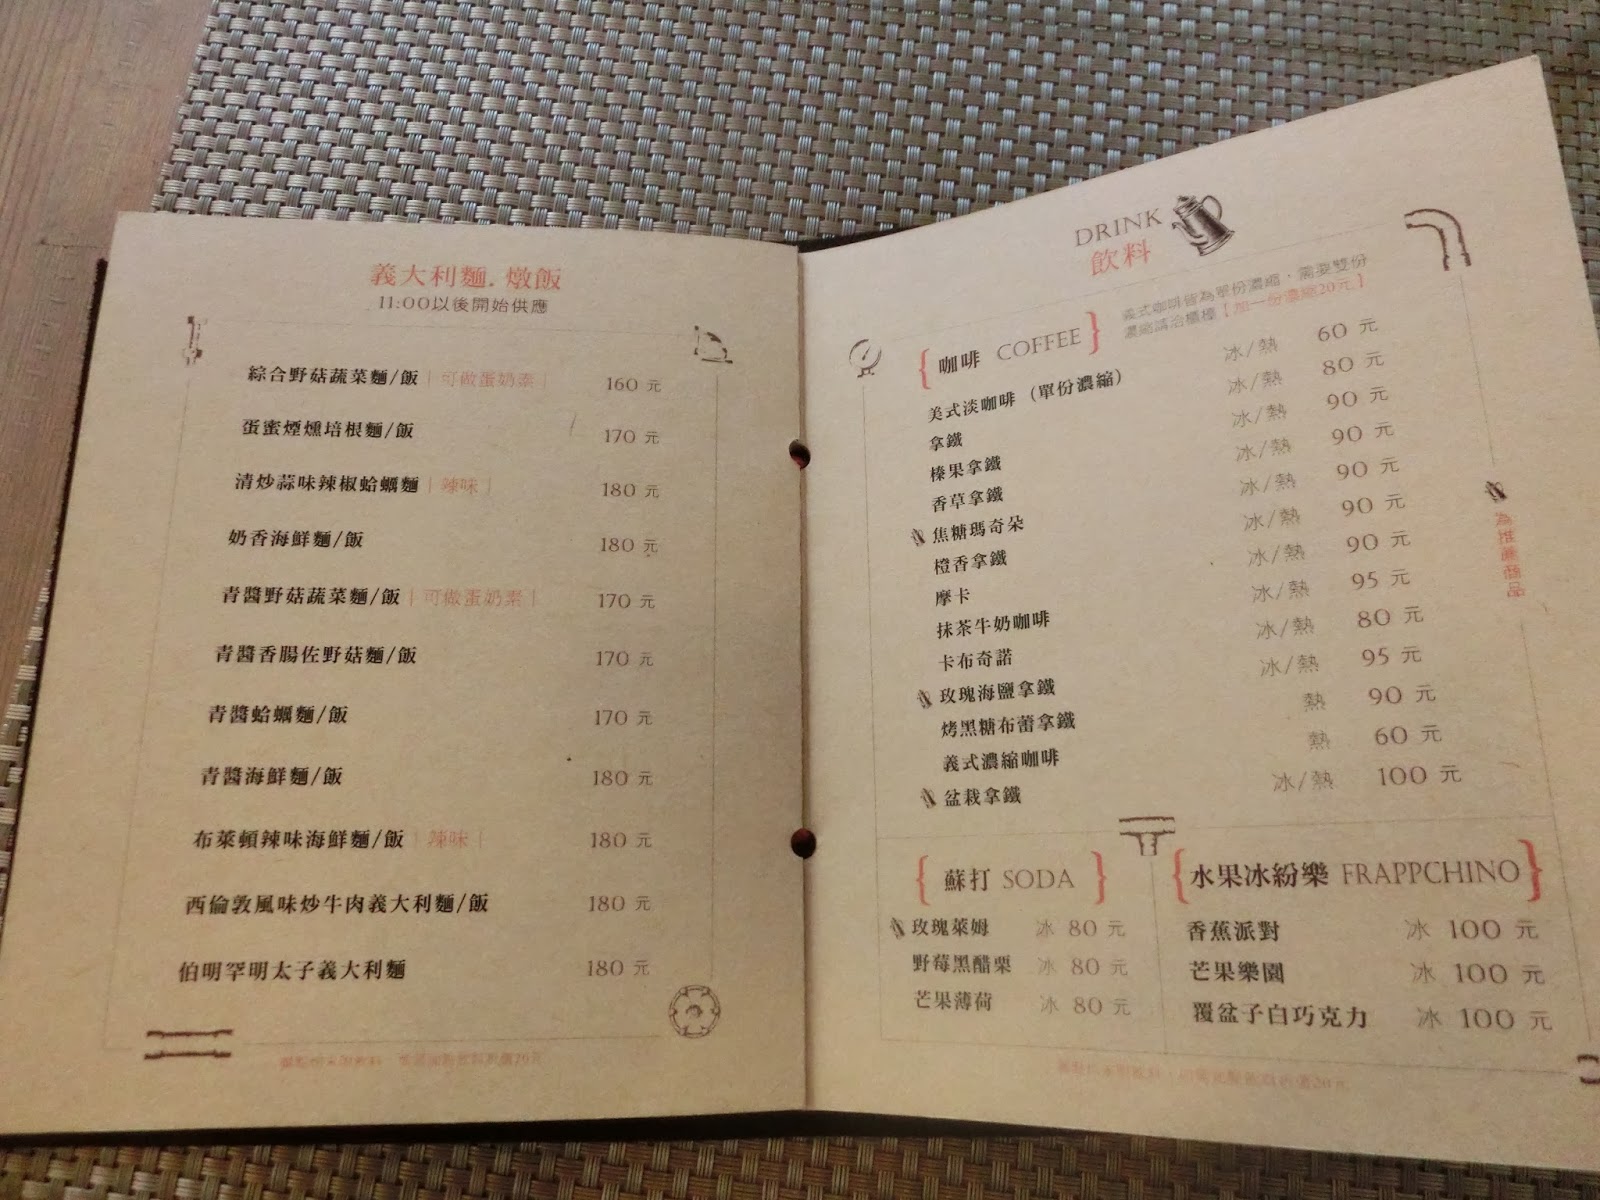 義大利麵.燉飯
11:00以後開始供應
綜合野菇蔬菜麵/飯|可做蛋奶素| 160 元
蛋蜜煙燻培根麵/飯 170 元
清炒蒜味辣椒蛤蠣麵|辣味| 180 元
奶香海鮮麵/飯 180 元
青醬野菇蔬菜麵/飯|可做蛋奶素| 170 元
青醬香腸佐野菇麵/飯 170 元
青醬蛤蠣麵/飯 170 元
青醬海鮮麵/飯 180 元
布萊頓辣味海鮮麵/飯|辣味| 180 元
西倫敦風味炒牛肉義大利麵/飯 180 元
伯明罕明太子義大利麵 180 元
DRINK
飲料
{咖啡 COFFEE}
義式咖啡皆為單份濃縮,需要雙份
濃縮請洽櫃檯【加一份濃縮20元】
美式淡咖啡(單份濃縮) 冰/熱 60 元
拿鐵 冰/熱 80 元
榛果拿鐵 冰/熱 90 元
香草拿鐵 冰/熱 90 元
焦糖瑪奇朵 冰/熱 90 元
橙香拿鐵 冰/熱 90 元
摩卡 冰/熱 90 元
抹茶牛奶咖啡 冰/熱 95 元
卡布奇諾 冰/熱 80 元
玫瑰海鹽拿鐵 冰/熱 95 元
烤黑糖布蕾拿鐵 熱 90 元
義式濃縮咖啡 熱 60 元
盆栽拿鐵 冰/熱 100 元
為推薦商品
{蘇打 SODA}
玫瑰萊姆 冰 80 元
野莓黑醋栗 冰 80 元
芒果薄荷 冰 80 元
{水果冰紛樂 FRAPPCHINO}
香蕉派對 冰 100 元
芒果樂園 冰 100 元
覆盆子白巧克力 冰 100 元